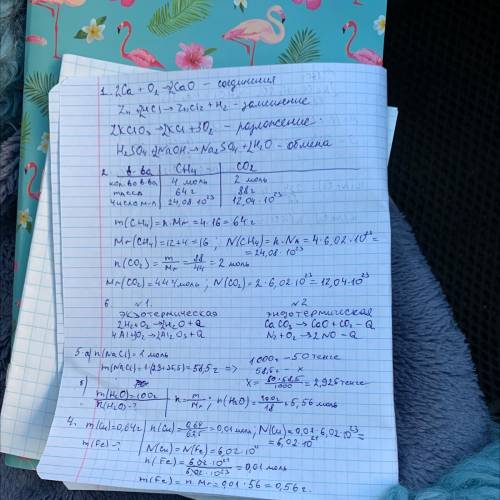 1. 2Ca + O₂ → 2CaO - соединения
Zn + 2HCl → ZnCl₂ + H₂ - замещение
2KClO₃ → 2KCl + 3O₂ - разложение.
H₂SO₄ + 2NaOH → Na₂SO₄ + 2H₂O - обмена
2. в-ва CH₄ CO₂
кол.во в-ва 4 моль 2 моль
масса 64 г 88 г
число м-л 24,08·10²³ 12,04·10²³
m(CH₄) = n·Mr = 4·16 = 64 г
Mr(CH₄) = 12+4 = 16; N(CH₄) = n·Na = 4·6,02·10²³ =
= 24,08·10²³
n(CO₂) = m/Mr = 88/44 = 2 моль
Mr(CO₂) = 44 г/моль; N(CO₂) = 2·6,02·10²³ = 12,04·10²³
6. №1. №2
экзотермическая эндотермическая
2H₂+O₂ → 2H₂O + Q CaCO₃ → CaO + CO₂ - Q
4Al+3O₂ → 2Al₂O₃ + Q N₂ + O₂ → 2NO - Q
3. а) n(NaCl) = 1 моль 1000г - 50 тенге
m(NaCl) = 1·(23+35,5) = 58,5 г => 58,5г - x
x = 50·58,5/1000 = 2,925 тенге
б)
m(H₂O) = 100г n = m/Mr; n(H₂O) = 100г/18 = 5,56 моль
n(H₂O) - ?
4. m(Cu) = 0,64г n(Cu) = 0,64/63,5 = 0,01 моль; N(Cu) = 0,01·6,02·10²³ =
= 6,02·10²¹
m(Fe) - ? N(Cu) = N(Fe) = 6,02·10²¹
n(Fe) = 6,02·10²¹/6,02·10²³ = 0,01 моль
m(Fe) = n·Mr = 0,01·56 = 0,56г.